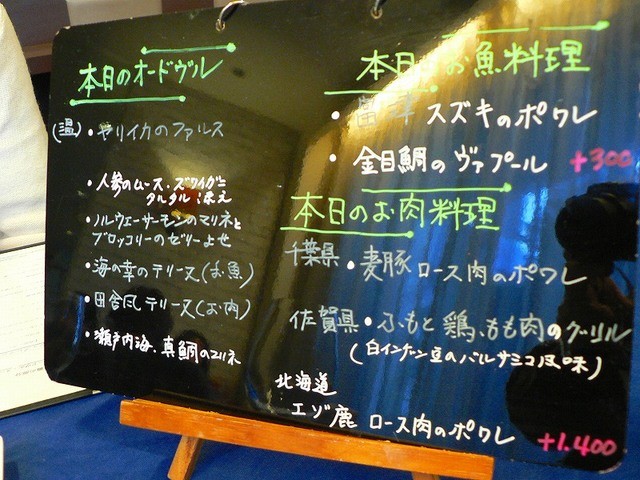 本日のオードヴル
(温)・ヤリイカのファルス
・人参のムース・ズワイガニ
タルタル添え
・ノルウェーサーモンのマリネと
ブロッコリーのゼリーよせ
・海の幸のテリーヌ(お魚)
・田舎風テリーヌ(お肉)
・瀬戸内海・真鯛のマリネ
本日のお魚料理
・富津 スズキのポワレ
・金目鯛のヴァプール +300
本日のお肉料理
千葉県・麦豚ロース肉のポワレ
佐賀県・ふもと鶏.もも肉のグリル
(白インゲン豆のバルサミコ風味)
北海道
エゾ鹿 ロース肉のポワレ +1.400